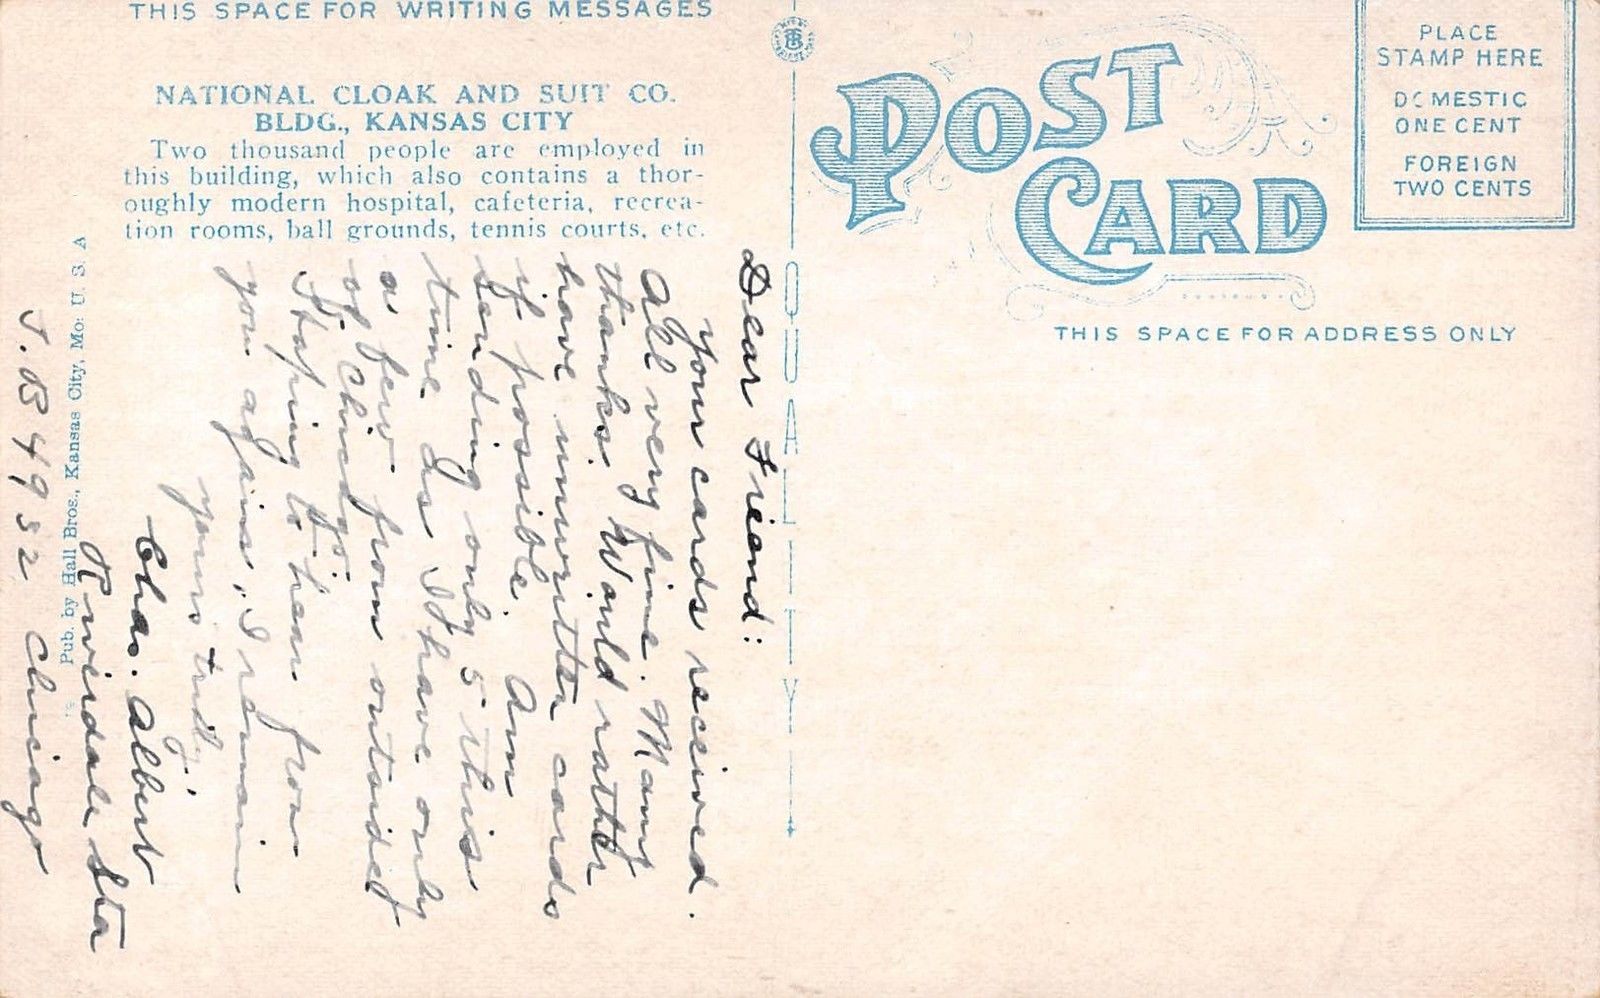 THIS SPACE FOR WRITING MESSAGES
NATIONAL CLOAK AND SUIT CO.
BLDG., KANSAS CITY
Two thousand people are employed in
this building, which also contains a thor-
oughly modern hospital, cafeteria, recrea-
tion rooms, ball grounds, tennis courts, etc.
Pub. by Hall Bros., Kansas City, Mo: U. S. A
Dear Friend:
Your cards received.
All very fine. Many
thanks. Would rather
have unwritten cards
if possible. Am
sending only 5 this
time as I have only
a few from outside
of Chicago.
Hoping to hear from
you again, I remain
yours truly,
Chas. Albert
Riverdale Sta
Chicago
J.B 4952
QUALITY
POST
CARD
PLACE
STAMP HERE
DOMESTIC
ONE CENT
FOREIGN
TWO CENTS
THIS SPACE FOR ADDRESS ONLY